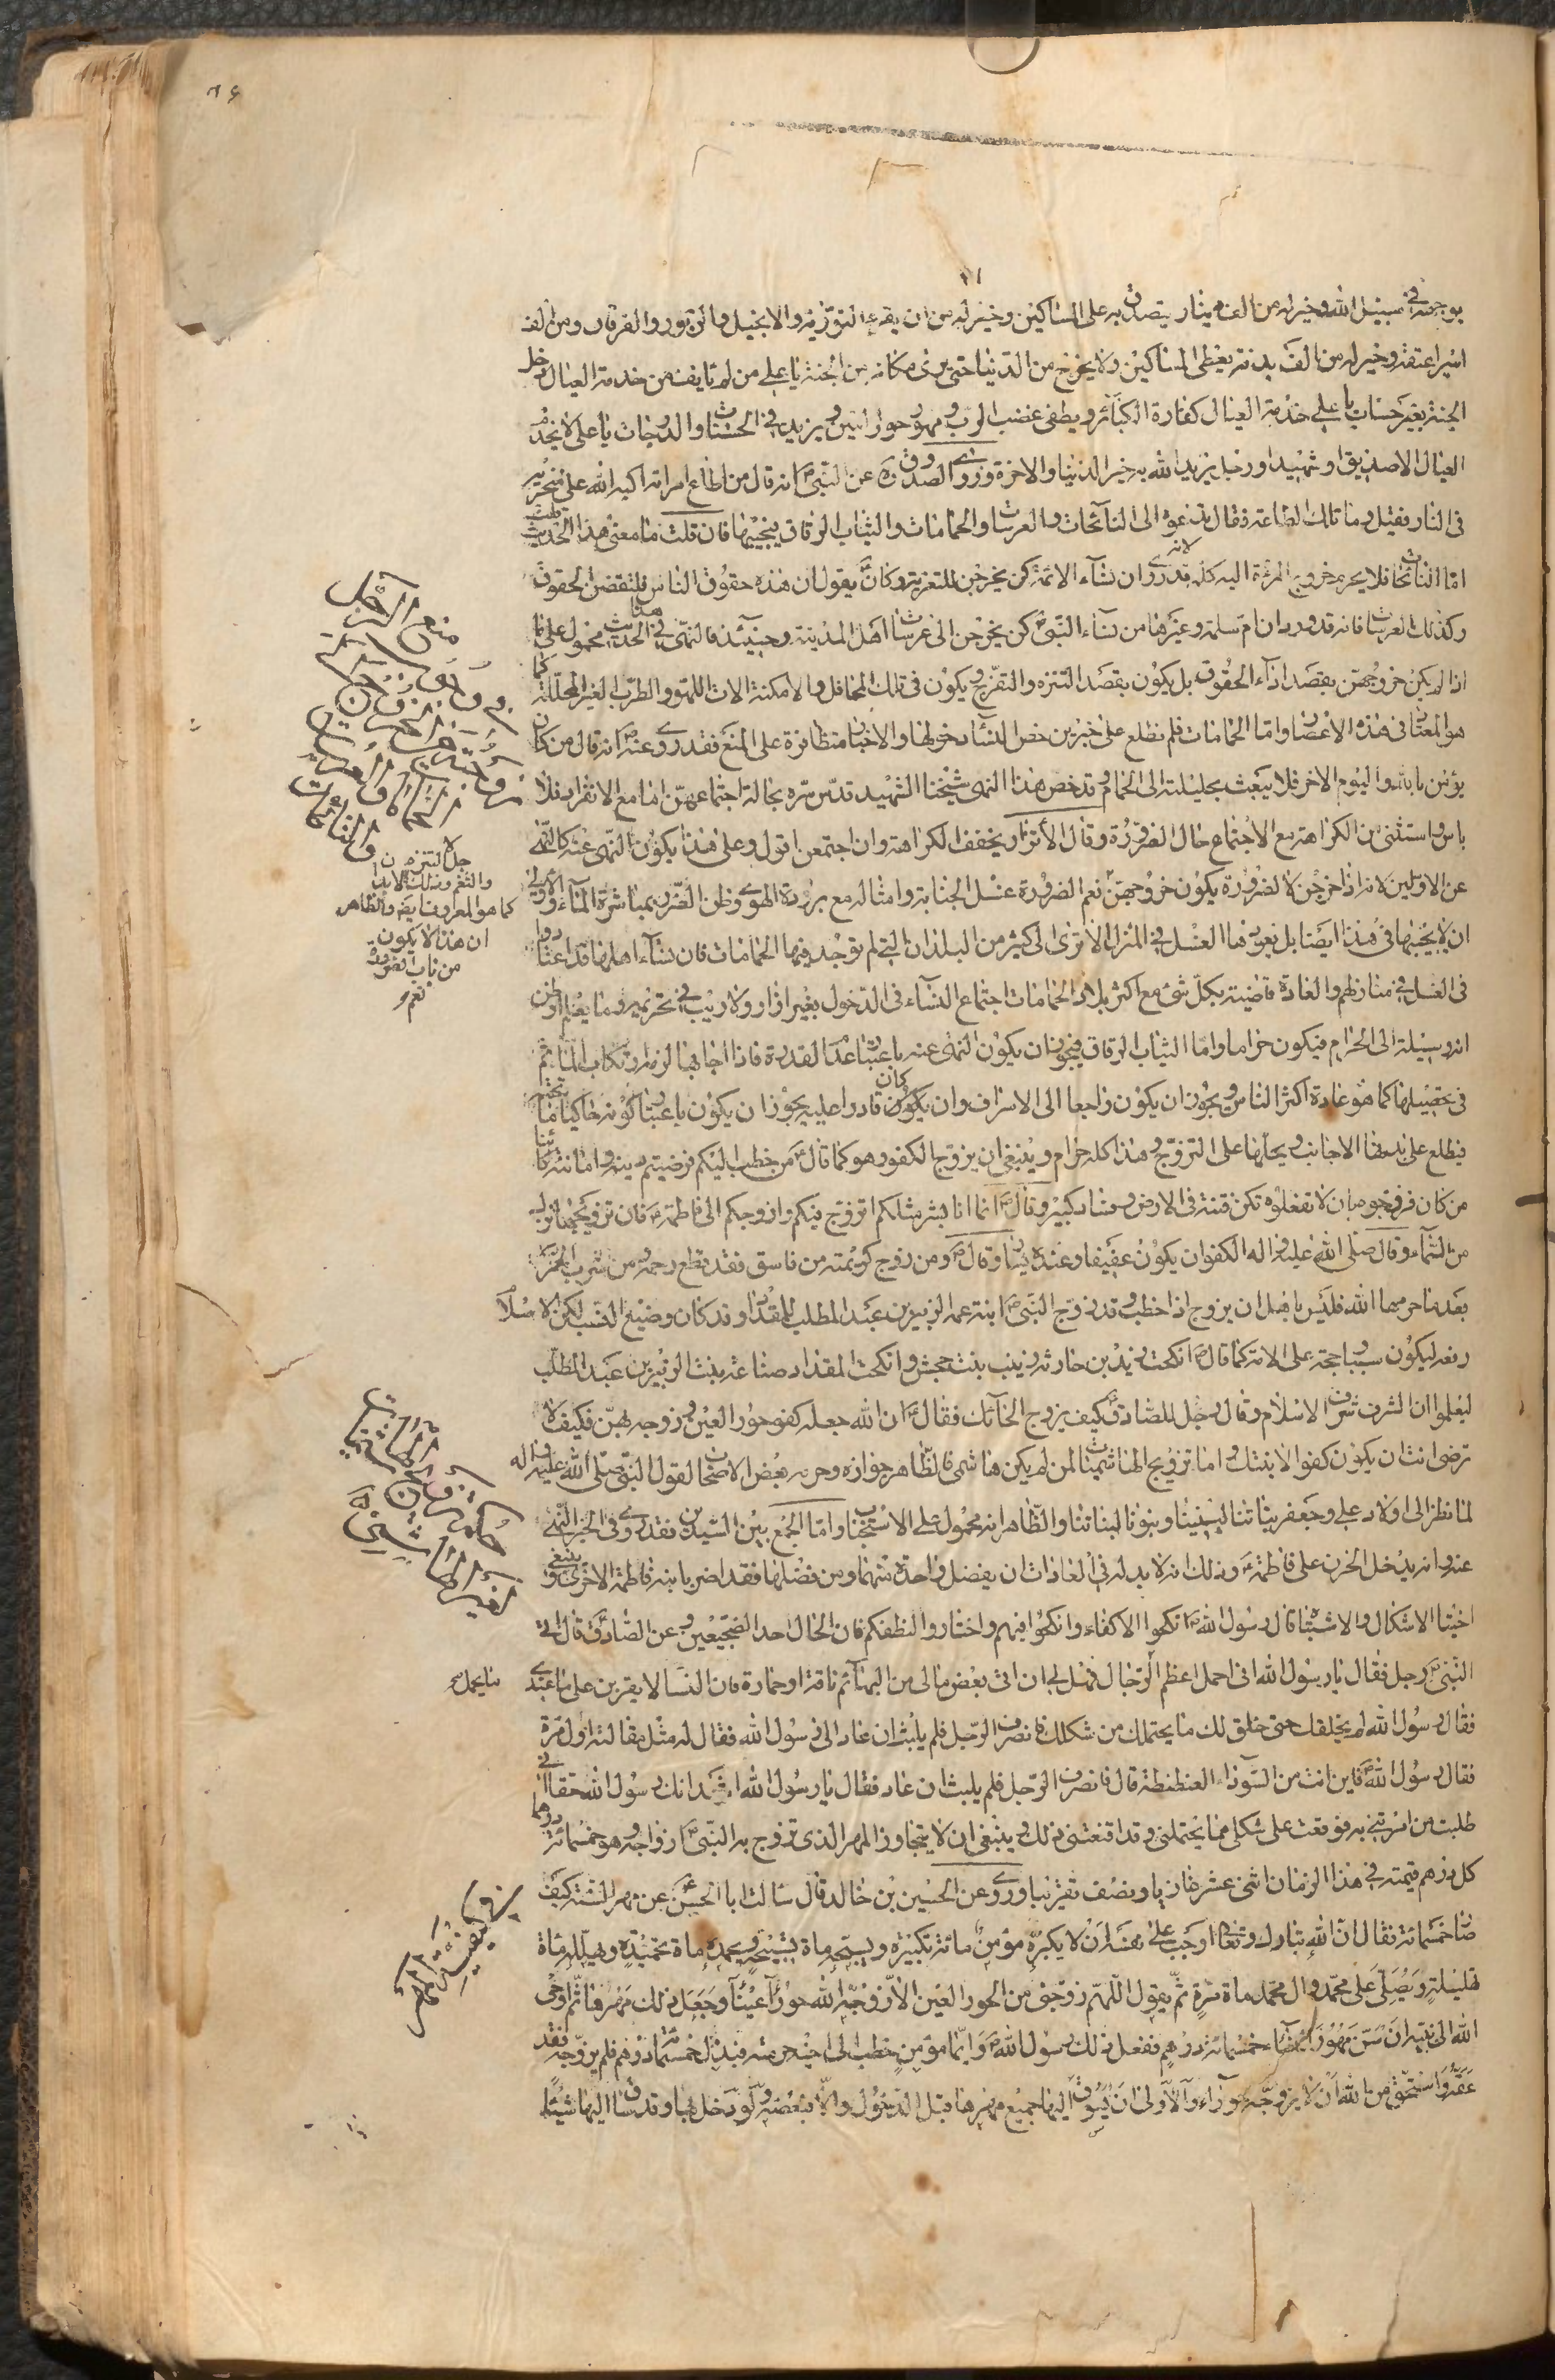 يوجهه في سبيل الله وخير له من الف دينار يتصدق به على المساكين وخير له من ان يقرء التورية والانجيل والزبور والفرقان ومن الف
اسير اعتقه وخير له من الف بدنة يعطى المساكين ولا يخرج من الدنيا حتى يرى مكانه من الجنة يا علي من لم يانف من خدمة العيال دخل
الجنة بغير حساب يا علي خدمة العيال كفارة الكبائر ويطفى غضب الرب ومهور حور العين ويزيد في الحسنات والدرجات يا علي لا يخدم
العيال الا صديق او شهيد او رجل يريد الله به خير الدنيا والاخرة وروى الصدوق ره عن النبي ص انه قال من اطاع امراته اكبه الله على منخريه
في النار فقيل وما تلك الطاعة فقال تدعوه الى النائحات والعرسات والحمامات والثياب الرقاق فيجيبها فان قلت ما معنى هذا الحديث قلت
اما النائحات فلا يحرم خروج المرءة اليه كله لانه قد روى ان نساء الائمة كن يخرجن للتعزية وكان يقول ان هذه حقوق الناس فلتقضى الحقوق
وكذلك العرسات فانه قد ورد ان ام سلمة وغيرها من نساء النبي ص كن يخرجن الى عرسات اهل المدينة وحينئذ فالنهى في هذا الحديث محمول على ما
اذا لم يكن خروجهن بقصد اداء الحقوق بل يكون بقصد التنزه والتفرج ويكون في تلك المحافل والامكنة الات اللهو والطرب الغير المحللة كما
هو المعتاد في هذه الاعصار واما الحمامات فلم نطلع على خبر من خص النساء دخولها والاخبار متظافرة على المنع فقد روى عنه ص انه قال من كان
يؤمن بالله واليوم الاخر فلا يبعث بحليلته الى الحمام وقد خص هذا النهى شيخنا الشهيد قدس سره بحالة اجتماعهن اما مع الانفراد فلا
باس واستثنى من الكراهة مع الاجتماع حال الضرورة وقال الاتزار ويخفف الكراهة وان اجتمعن اقول وعلى هذا يكون النهى عنه كالنهى
عن الاولين لانه اذا خرجن لا لضرورة يكون خروجهن نعم الضرورة غسل الجنابة وامثاله مع برودة الهوى وظن الضرر بمباشرة الماء والاولى
ان لا يجيبها في هذا ايضا بل يعودها الغسل في المنزل الا ترى الى كثير من البلدان التى لم توجد فيها الحمامات فان نساء اهلها قد اعتادوا
في الغسل في منازلهم والعادة قاضية بكل شئ مع اكثر بلاد الحمامات اجتماع النساء في الدخول بغير ازار ولا ريب في تحريمه فيما يعلم او ظن
انه وسيلة الى الحرام فيكون حراما واما الثياب الرقاق فيجوز ان يكون النهى عنه باعتبار عدم القدرة فاذا اجابها لزمه ارتكاب المآثم
في تحصيلها كما هو عادة اكثر الناس ويجوز ان يكون راجعا الى الاسراف وان كان يكون قادرا عليه ويجوز ان يكون باعتبار كونه حاكيا ما تحته
فيطلع على بدنها الاجانب ويحلها على التزوج وهذا كله حرام وينبغي ان يزوج الكفو وهو كما قال ص من خطب اليكم فرضيتم دينه وامانته كائنا
من كان فزوجوه فان لا تفعلوه تكن فتنة في الارض وفساد كبير وقال ص انما انا بشر مثلكم اتزوج فيكم وازوجكم الا فاطمة ع فان تزويجها نزل
من السماء وقال صلى الله عليه واله الكفو ان يكون عفيفا وعنده يسار وقال ص ومن زوج كريمته من فاسق فقد قطع رحمه ومن شرب الخمر
بعد ما حرمها الله فليس باهل ان يزوج اذا خطب وقد زوج النبي ص ابنة عمه الزبير بن عبد المطلب للمقداد وقد كان وضيع النسب لكن الاسلام
رفعه ليكون سببا حجة على الامة كما قال ص انكحت زيد بن حارثة زينب بنت جحش وانكحت المقداد ضباعة بنت الزبير بن عبد المطلب
ليعلموا ان الشرف شرف الاسلام وقال رجل للصادق ع كيف يزوج الحائك فقال ع ان الله جعله كفو حور العين وزوجه بهن فكيف لا
ترضى انت ان يكون كفوا لابنتك واما تزويج الهاشميات لمن لم يكن هاشمى فالظاهر جوازه وحرمه بعض الاصحاب لقول النبي صلى الله عليه واله
لما نظر الى اولاد علي وجعفر بناتنا لبنينا وبنونا لبناتنا والظاهر انه محمول على الاستحباب واما الجمع بين السيدتين فقد روى في الخبر النهى
عنه وانه يدخل الحزن على فاطمة ع وذلك انه لا بد له في العادات ان يفضل واحدة منهما ومن فضلها فقد اضر بابنة فاطمة الاخرى وينبغي
اختيار الاشكال والاشباه قال رسول الله ص انكحوا الاكفاء وانكحوا فيهم واختاروا لنطفكم فان الخال احد الضجيعين وعن الصادق ع قال اتى
النبي ص رجل فقال يا رسول الله انى احمل اعظم ما يحمل الرجال فهل لي ان اتى بعض مالى من البهائم ناقة او حمارة فان النساء لا يقوين على ما عندى
فقال رسول الله ص لم يخلقك حتى خلق لك ما يحتملك من شكلك فانصرف الرجل فلم يلبث ان عاد الى رسول الله فقال له مثل مقالته اول مرة
فقال رسول الله ص فاين انت من السوداء العنطنطة قال فانصرف الرجل فلم يلبث ان عاد فقال يا رسول الله اشهد انك رسول الله حقا انى
طلبت من امرتنى به فوقعت على شكلى مما يحتملنى وقد اقنعتنى ذلك وينبغى ان لا يتجاوز المهر الذى تزوج به النبي ص ازواجه وهو خمسمائة درهم
كل درهم قيمته في هذا الزمان اثنى عشر غازيا ونصف تقريبا وروى عن الحسين بن خالد قال سالت ابا الحسن ع عن مهر السنة كيف
صار خمسمائة فقال ان الله تبارك وتعالى اوجب على نفسه ان لا يكبره مؤمن مائة تكبيرة ويسبحه ماة تسبيحة ويحمده ماة تحميدة ويهلله ماة
تهليلة ويصلى على محمد وال محمد ماة مرة ثم يقول اللهم زوجنى من الحور العين الا زوجه الله حورآء عيناء وجعل ذلك مهرها ثم اوحى
الله الى نبيه ان سن مهور النساء خمسمائة درهم ففعل ذلك رسول الله ص وايما مؤمن خطب الى اخيه حرمته فبذل خمسمائة درهم فلم يزوجه فقد
عقه واستحق من الله ان لا يزوجه حورآء والاولى ان يسوق اليها جميع مهرها قبل الدخول والا فبعضه ولو دخل بها وقد ساق اليها شيئا
منع الرجل
جل لا لتنزه
والتغر وذلك لابدا
كما هو المعروف ايضا والظاهر
ان هذا لا يكون
من باب تضرورة
نعم
ما يحمل